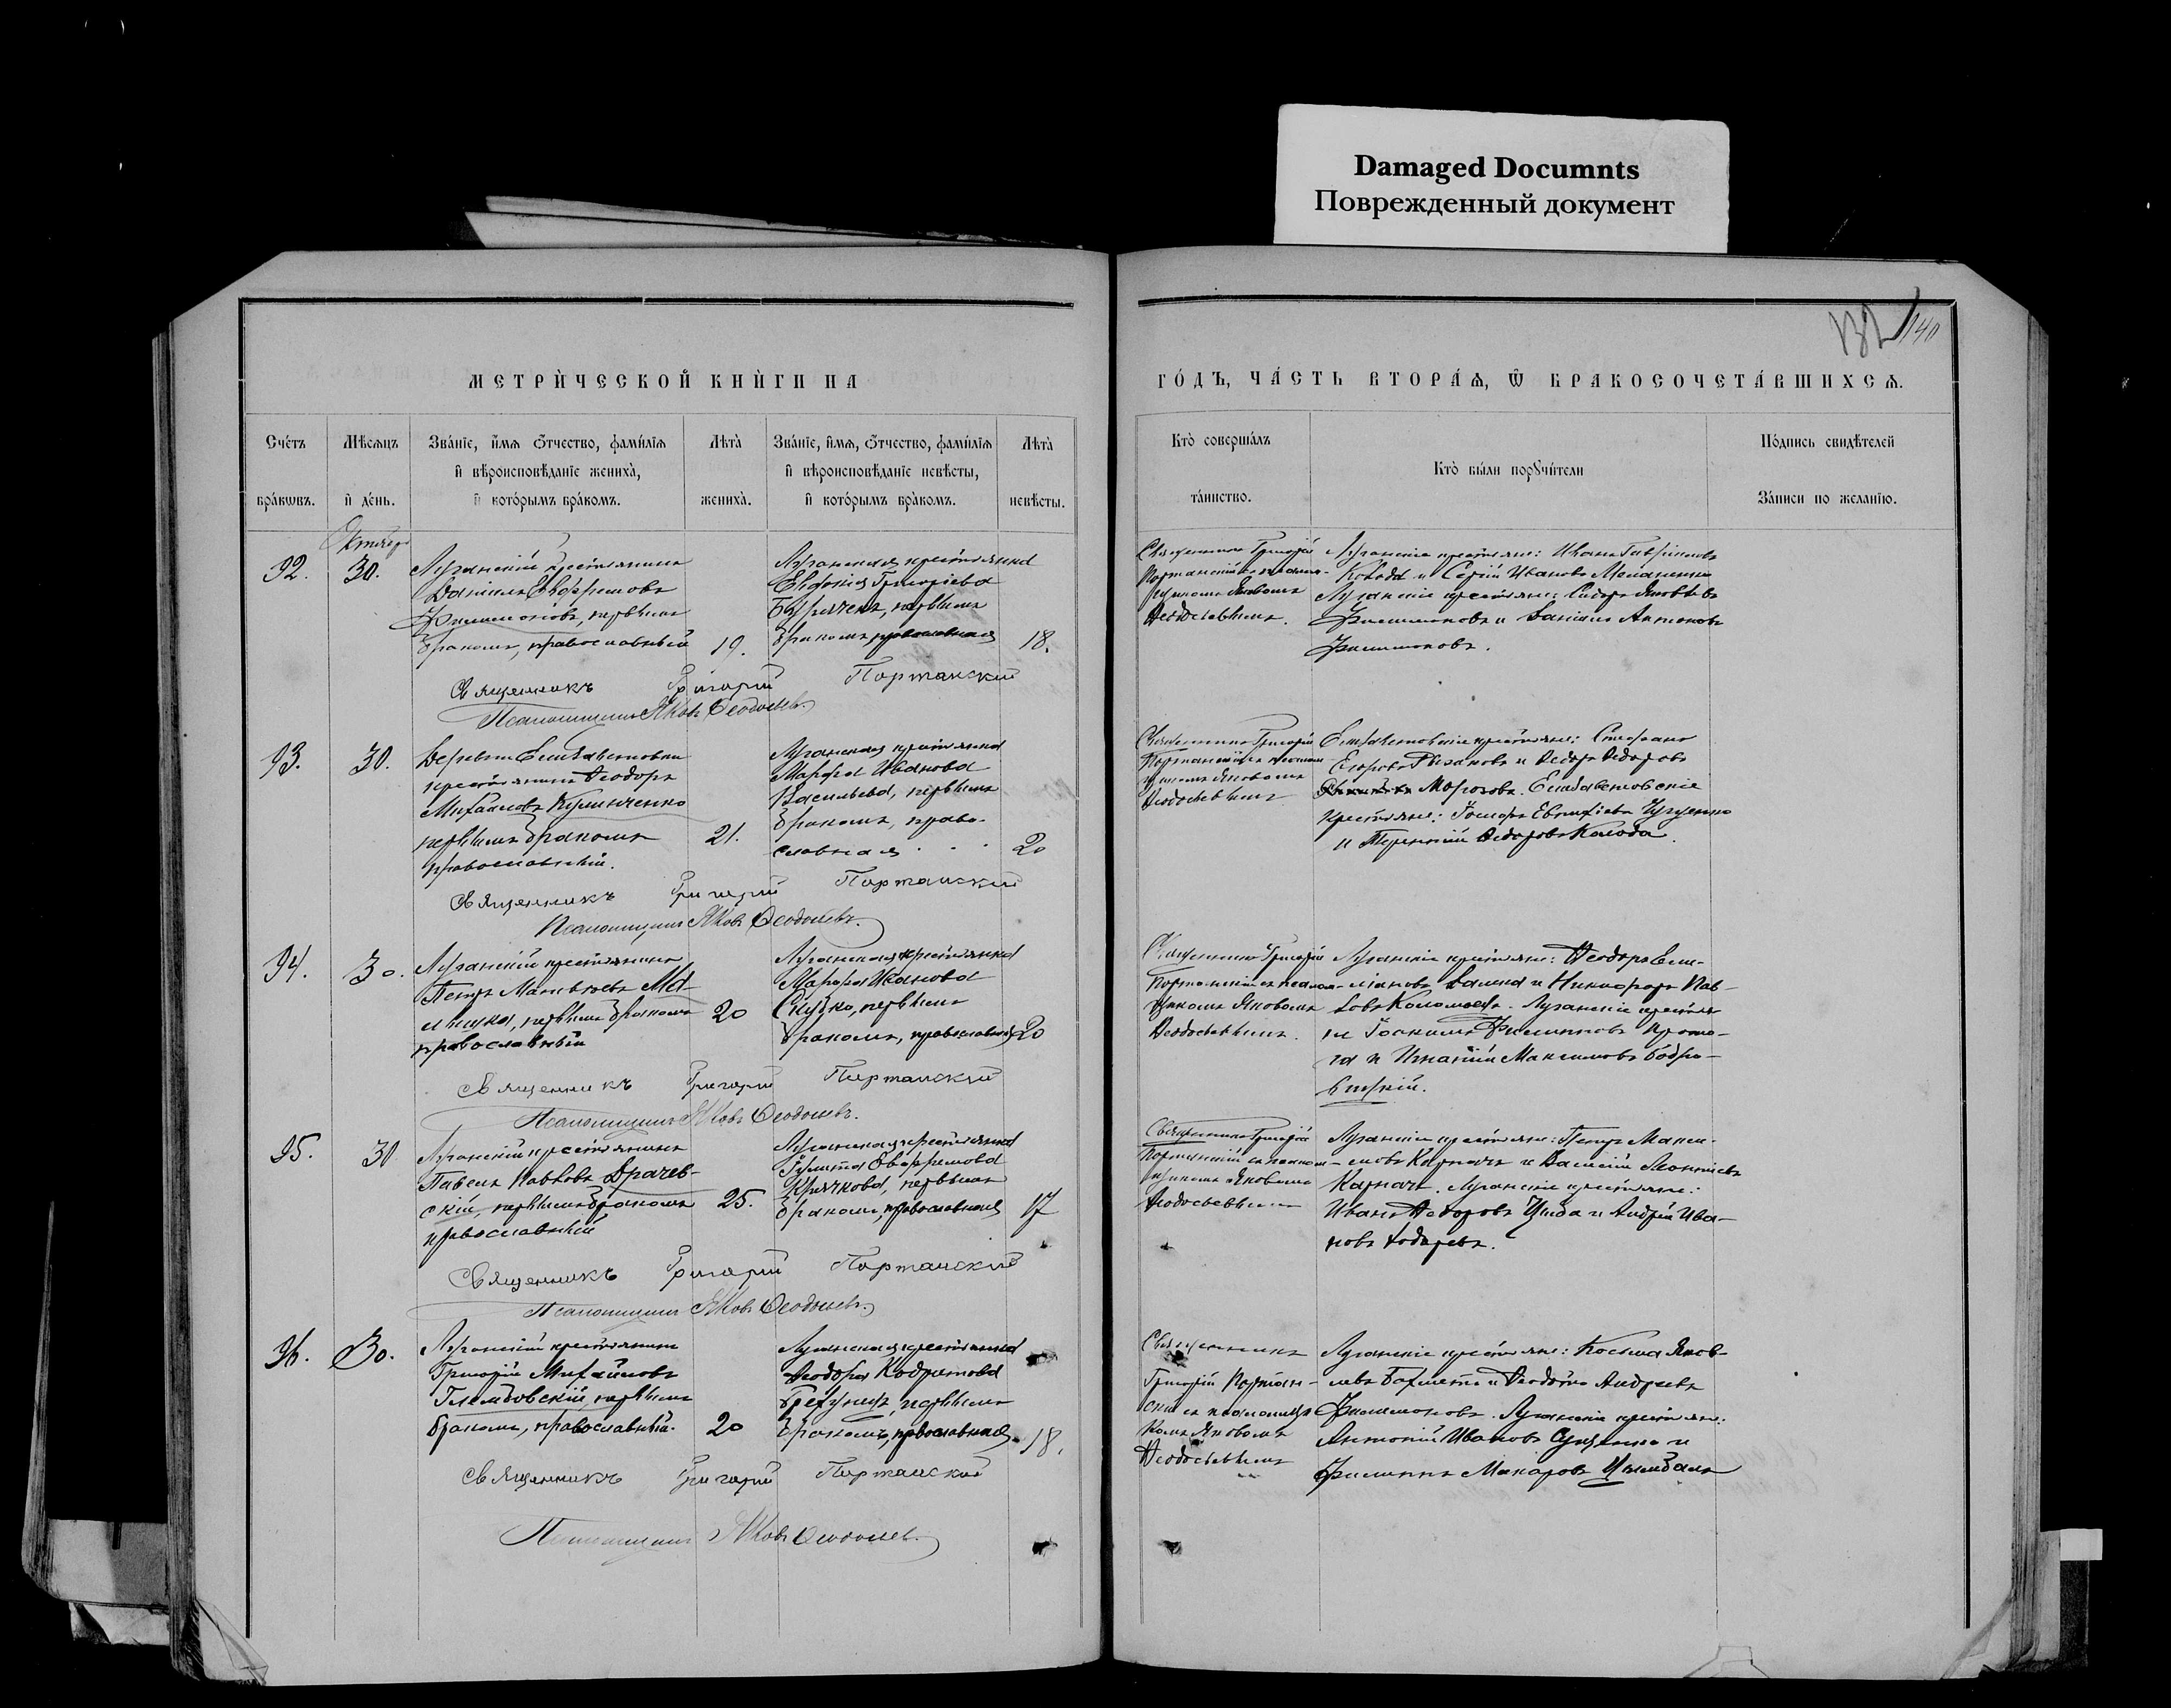 Damaged Documnts
Поврежденный документ
132 140
МЕТРИ́ЧЕСКОЙ КНИ́ГИ НА
ГО́ДЪ, ЧА́СТЬ ВТОРА́Ѧ, Ѽ БРАКОСОЧЕТА́ВШИХСѦ.
Сче́тъ бра́кѡвъ.
Мѣ́сѧцъ и҆ де́нь.
Зва́нїе, и҆́мѧ ѻ҆́тчество, фами́лїѧ
и҆ вѣроисповѣ́данїе жениха̀,
и҆ кото́рымъ бра́комъ.
Лѣта̀ жениха̀.
Зва́нїе, и҆́мѧ, ѻ҆́тчество, фами́лїѧ
и҆ вѣроисповѣ́данїе невѣ́сты,
и҆ кото́рымъ бра́комъ.
Лѣта̀ невѣ́сты.
Кто̀ соверша́лъ та́инство.
Кто̀ бы́ли порꙋчи́тели
По́дпись свидѣ́телей
За́писи по жела́нїю.
Октября
92.
30.
Луганскій крестьянинъ
Даніилъ Евфремовъ
Филимоновъ, первымъ
бракомъ, православный
19.
Луганская крестьянка
Евдокія Григоріева
первымъ
бракомъ, православная
18.
Священникъ Григорій
Портанскій съ псалом-
щикомъ Яковомъ
Ѳеодосьевымъ.
Луганскіе крестьяне: Иванъ Гавріиловъ
и Сергій Ивановъ
Луганскіе крестьяне: Сидоръ Яковлевъ
Филимоновъ и Даніилъ Антоновъ
Филимоновъ.
Священникъ Григорій Портанскій
Псаломщикъ Яковъ Ѳеодосьевъ.
93.
30.
Деревни Елисаветовки
крестьянинъ Ѳеодоръ
Михайловъ
первымъ бракомъ
православный.
21.
Луганская крестьянка
Марфа Иванова
Васильева, первымъ
бракомъ, право-
славная
20
Священникъ Григорій
Портанскій съ псалом-
щикомъ Яковомъ
Ѳеодосьевымъ
Елисаветовскіе крестьяне: Стефанъ
Егоровъ и Ѳедоръ Ѳедоровъ
Морозовъ. Елисаветовскіе
крестьяне: Іосифъ
и Терентій Ѳедоровъ Колода.
Священникъ Григорій Портанскій
Псаломщикъ Яковъ Ѳеодосьевъ.
94.
30.
Луганскій крестьянинъ
Петръ Матвѣевъ
первымъ бракомъ
православный
20
Луганская крестьянка
Марфа Иванова
Скубко, первымъ
бракомъ, православная
20
Священникъ Григорій
Портанскій съ псалом-
щикомъ Яковомъ
Ѳеодосьевымъ.
Луганскіе крестьяне: Ѳеодоръ
и Никифоръ Пав-
ловъ Коломоецъ. Луганскіе крестья-
не Іоакимъ Филипповъ
и Игнатій Максимовъ Бобро-
вицкій.
Священникъ Григорій Портанскій
Псаломщикъ Яковъ Ѳеодосьевъ.
95.
30
Луганскій крестьянинъ
Павелъ Павловъ Драчев-
скій, первымъ бракомъ
православный
25.
Луганская крестьянка
Евфремова
Крячкова, первымъ
бракомъ, православная
17
Священникъ Григорій
Портанскій съ псалом-
щикомъ Яковомъ
Ѳеодосьевымъ
Луганскіе крестьяне: Петръ Макси-
мовъ Карначъ и Василій Леонтіевъ
Карначъ. Луганскіе крестьяне:
Иванъ Ѳедоровъ и Андрей Ива-
новъ
Священникъ Григорій Портанскій
Псаломщикъ Яковъ Ѳеодосьевъ.
96.
30.
Луганскій крестьянинъ
Григорій Михайловъ
Глембовскій, первымъ
бракомъ, православный.
20
Луганская крестьянка
Ѳеодора Кодратова
первымъ
бракомъ, православная.
18.
Священникъ
Григорій Портан-
скій съ псаломщи-
комъ Яковомъ
Ѳеодосьевымъ
Луганскіе крестьяне: Косьма Яков-
левъ и Андреевъ
Филимоновъ. Луганскіе крестьяне:
Антоній Ивановъ Сущенко и
Филиппъ Макаровъ Цымбалъ
Священникъ Григорій Портанскій
Псаломщикъ Яковъ Ѳеодосьевъ.